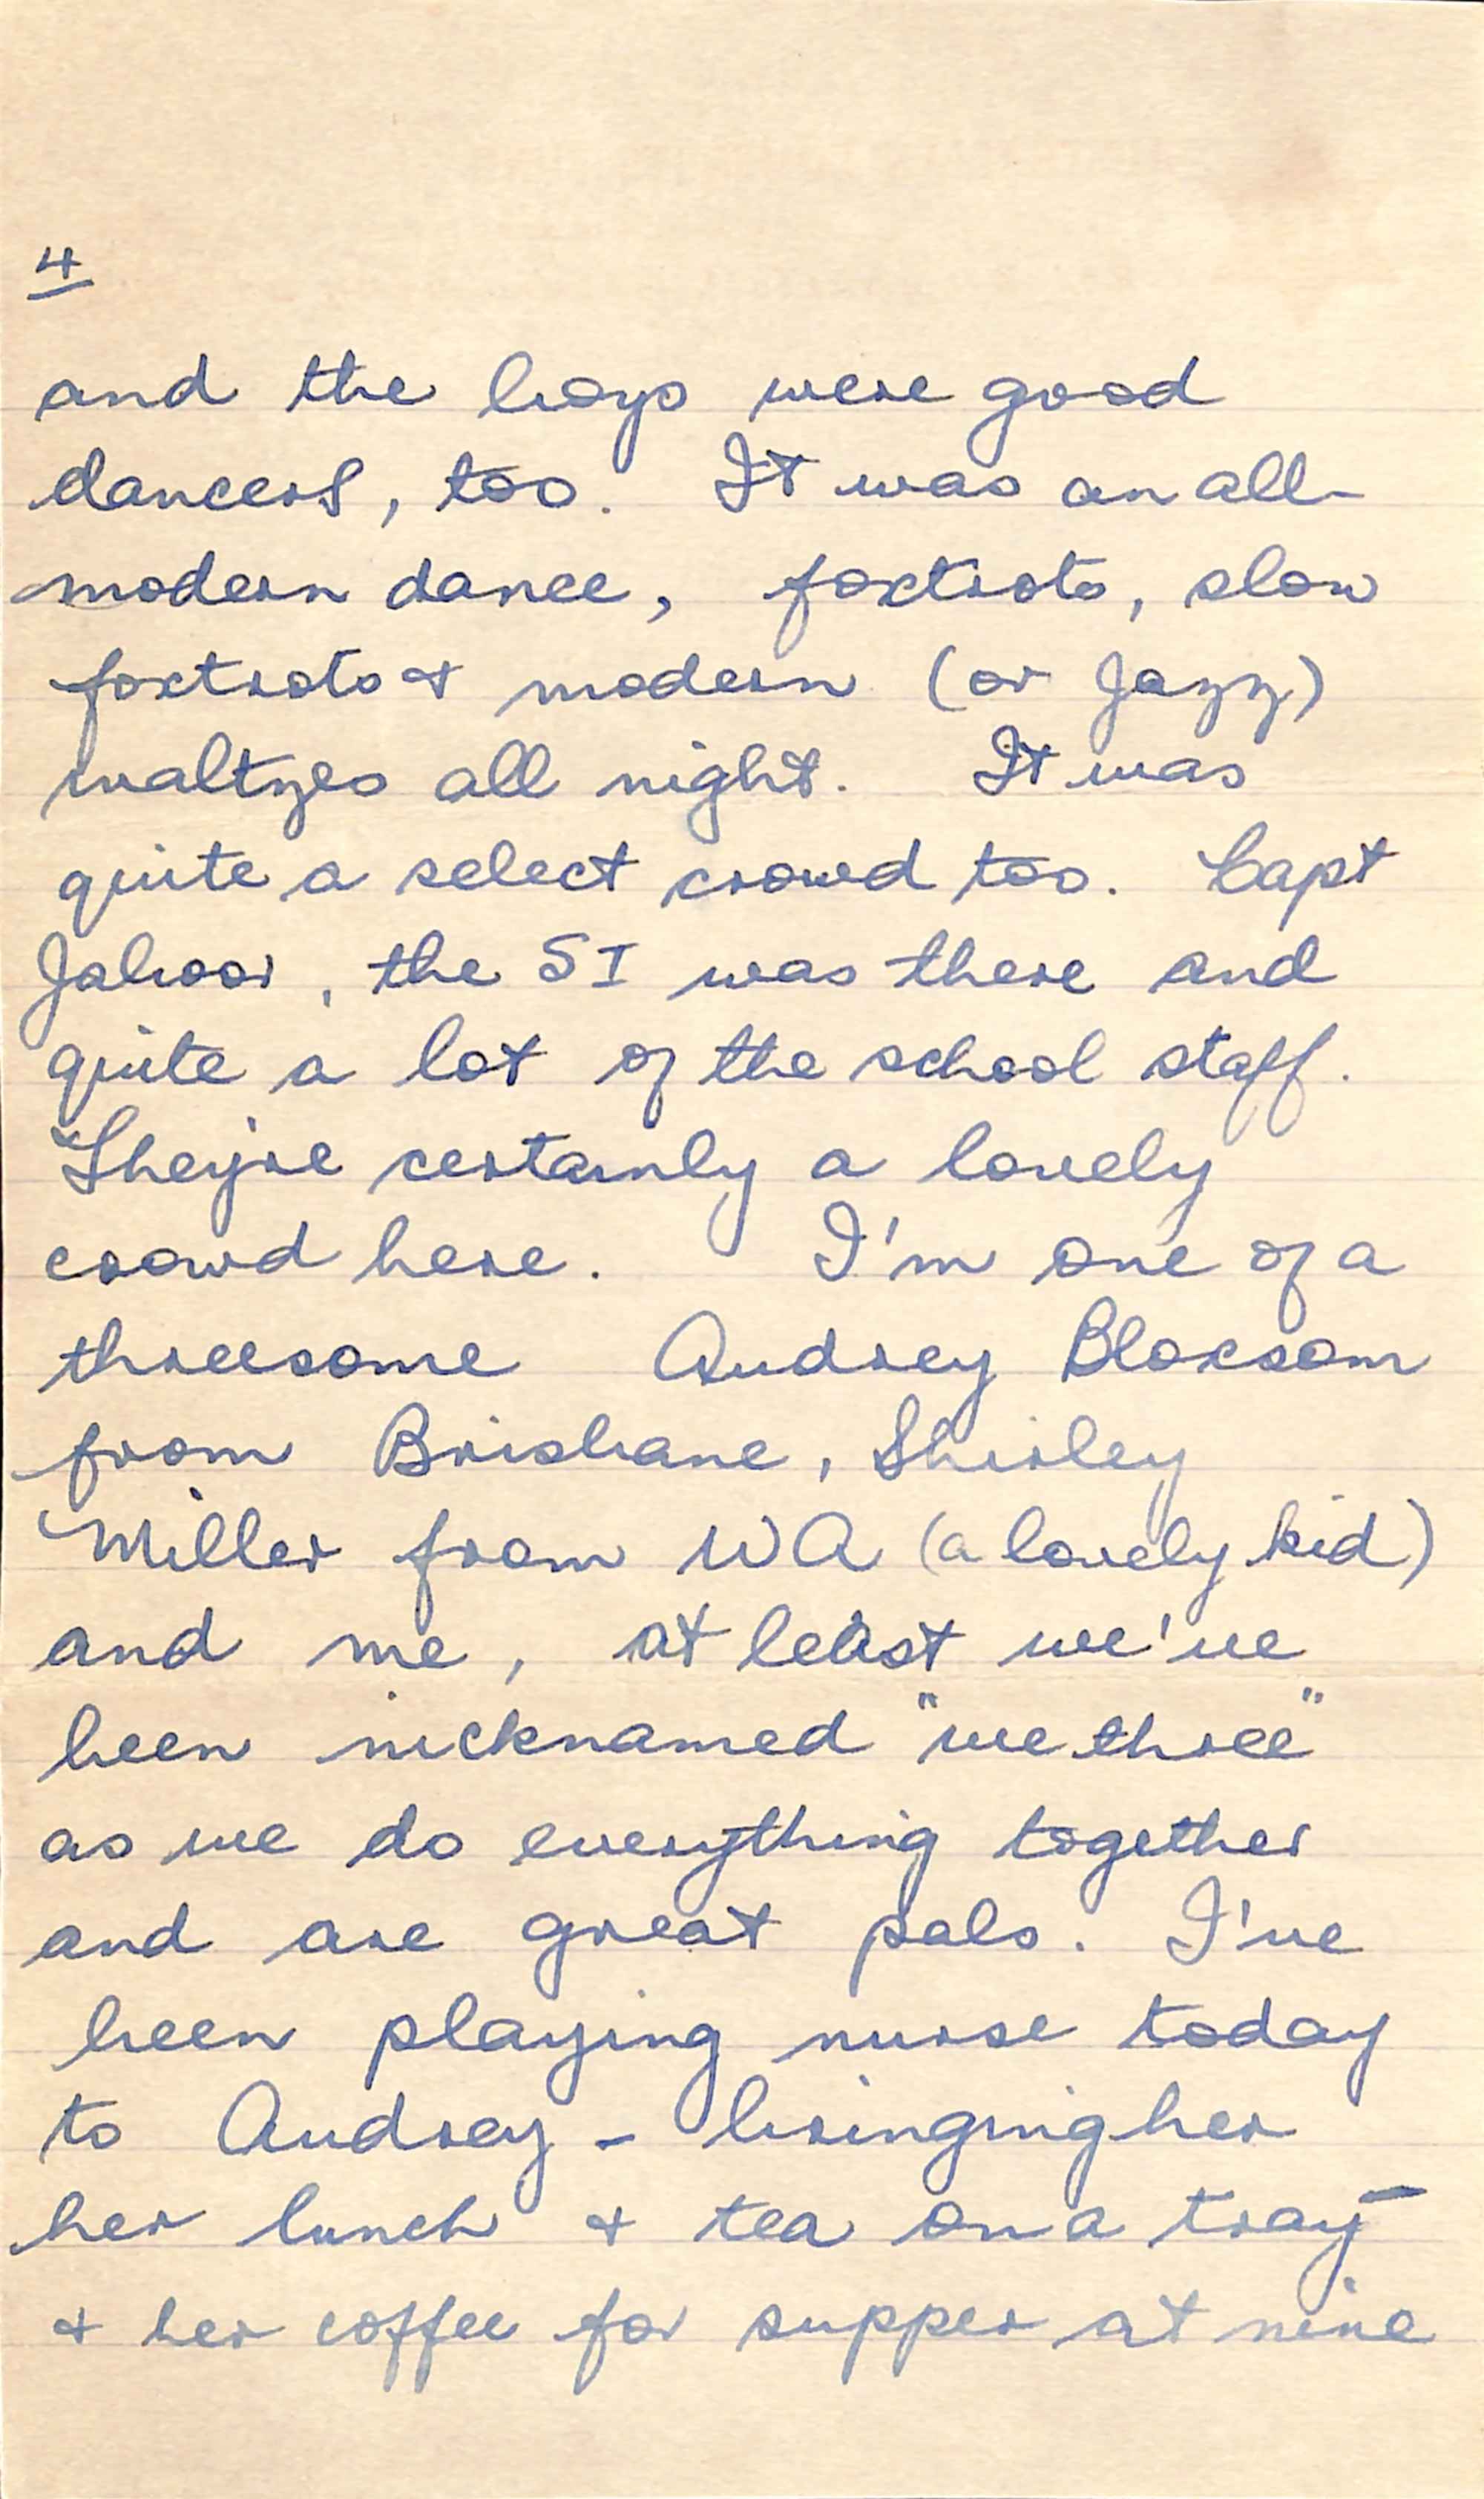 4
and the boys were good
dancers, too. It was an all-
modern dance, foxtrots, slow
foxtrots & modern (or Jazz)
waltzes all night. It was
quite a select crowd too. Capt
Jaboor, the SI was there and
quite a lot of the school staff.
They're certainly a lovely
crowd here. I'm one of a
threesome Audrey Bloxsom
from Brisbane, Shirley
Miller from WA (a lovely kid)
and me, at least we've
been nicknamed "we three"
as we do everything together
and are great pals. I've
been playing nurse today
to Audrey - bringing her
her lunch & tea on a tray -
& her coffee for supper at nine